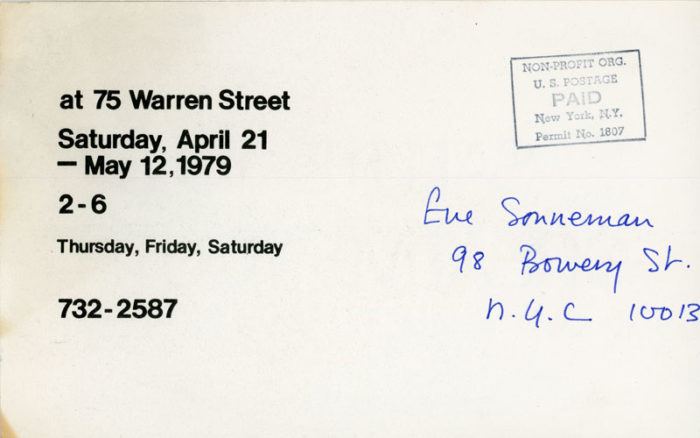 at 75 Warren Street
Saturday, April 21
— May 12, 1979
2-6
Thursday, Friday, Saturday
732-2587
NON-PROFIT ORG.
U. S. POSTAGE
PAID
New York, N.Y.
Permit No. 1807
Eve Sonneman
98 Bowery St.
N.Y.C 10013